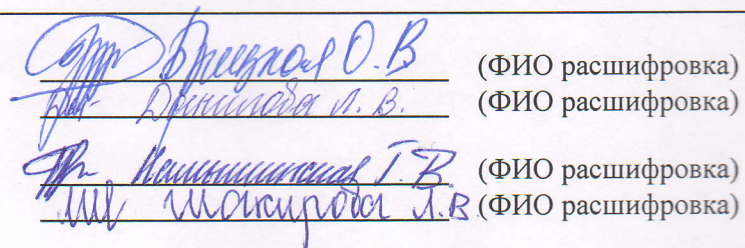 Брицкая О.В (ФИО расшифровка)
Данилова Л.В. (ФИО расшифровка)
Т.В. (ФИО расшифровка)
Шакирова Л.В (ФИО расшифровка)